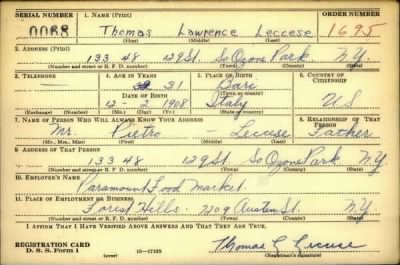 SERIAL NUMBER 1. NAME (Print) ORDER NUMBER
0068 Thomas Lawrence Leccese 1695
(First) (Middle) (Last)
2. ADDRESS (Print)
133 48 129 St. So Ozone Park. N.Y.
(Number and street or R. F. D. number) (Town) (County) (State)
3. TELEPHONE 4. AGE IN YEARS 5. PLACE OF BIRTH 6. COUNTRY OF CITIZENSHIP
31 Bari
DATE OF BIRTH (Town or county)
12 - 2 1908 Italy U S
(Exchange) (Number) (Mo.) (Day) (Yr.) (State or country)
7. NAME OF PERSON WHO WILL ALWAYS KNOW YOUR ADDRESS 8. RELATIONSHIP OF THAT PERSON
Mr. Pietro - Leccese Father
(Mr., Mrs., Miss) (First) (Middle) (Last)
9. ADDRESS OF THAT PERSON
133 48 129 St. So Ozone Park N.Y.
(Number and street or R. F. D. number) (Town) (County) (State)
10. EMPLOYER'S NAME
Paramount Food Market.
11. PLACE OF EMPLOYMENT OR BUSINESS
Forest Hills. Austin St. N.Y.
(Number and street or R. F. D. number) (Town) (County) (State)
I AFFIRM THAT I HAVE VERIFIED ABOVE ANSWERS AND THAT THEY ARE TRUE.
REGISTRATION CARD
D. S. S. Form 1 (over) 16-17105 Thomas L Leccese
(Registrant's signature)